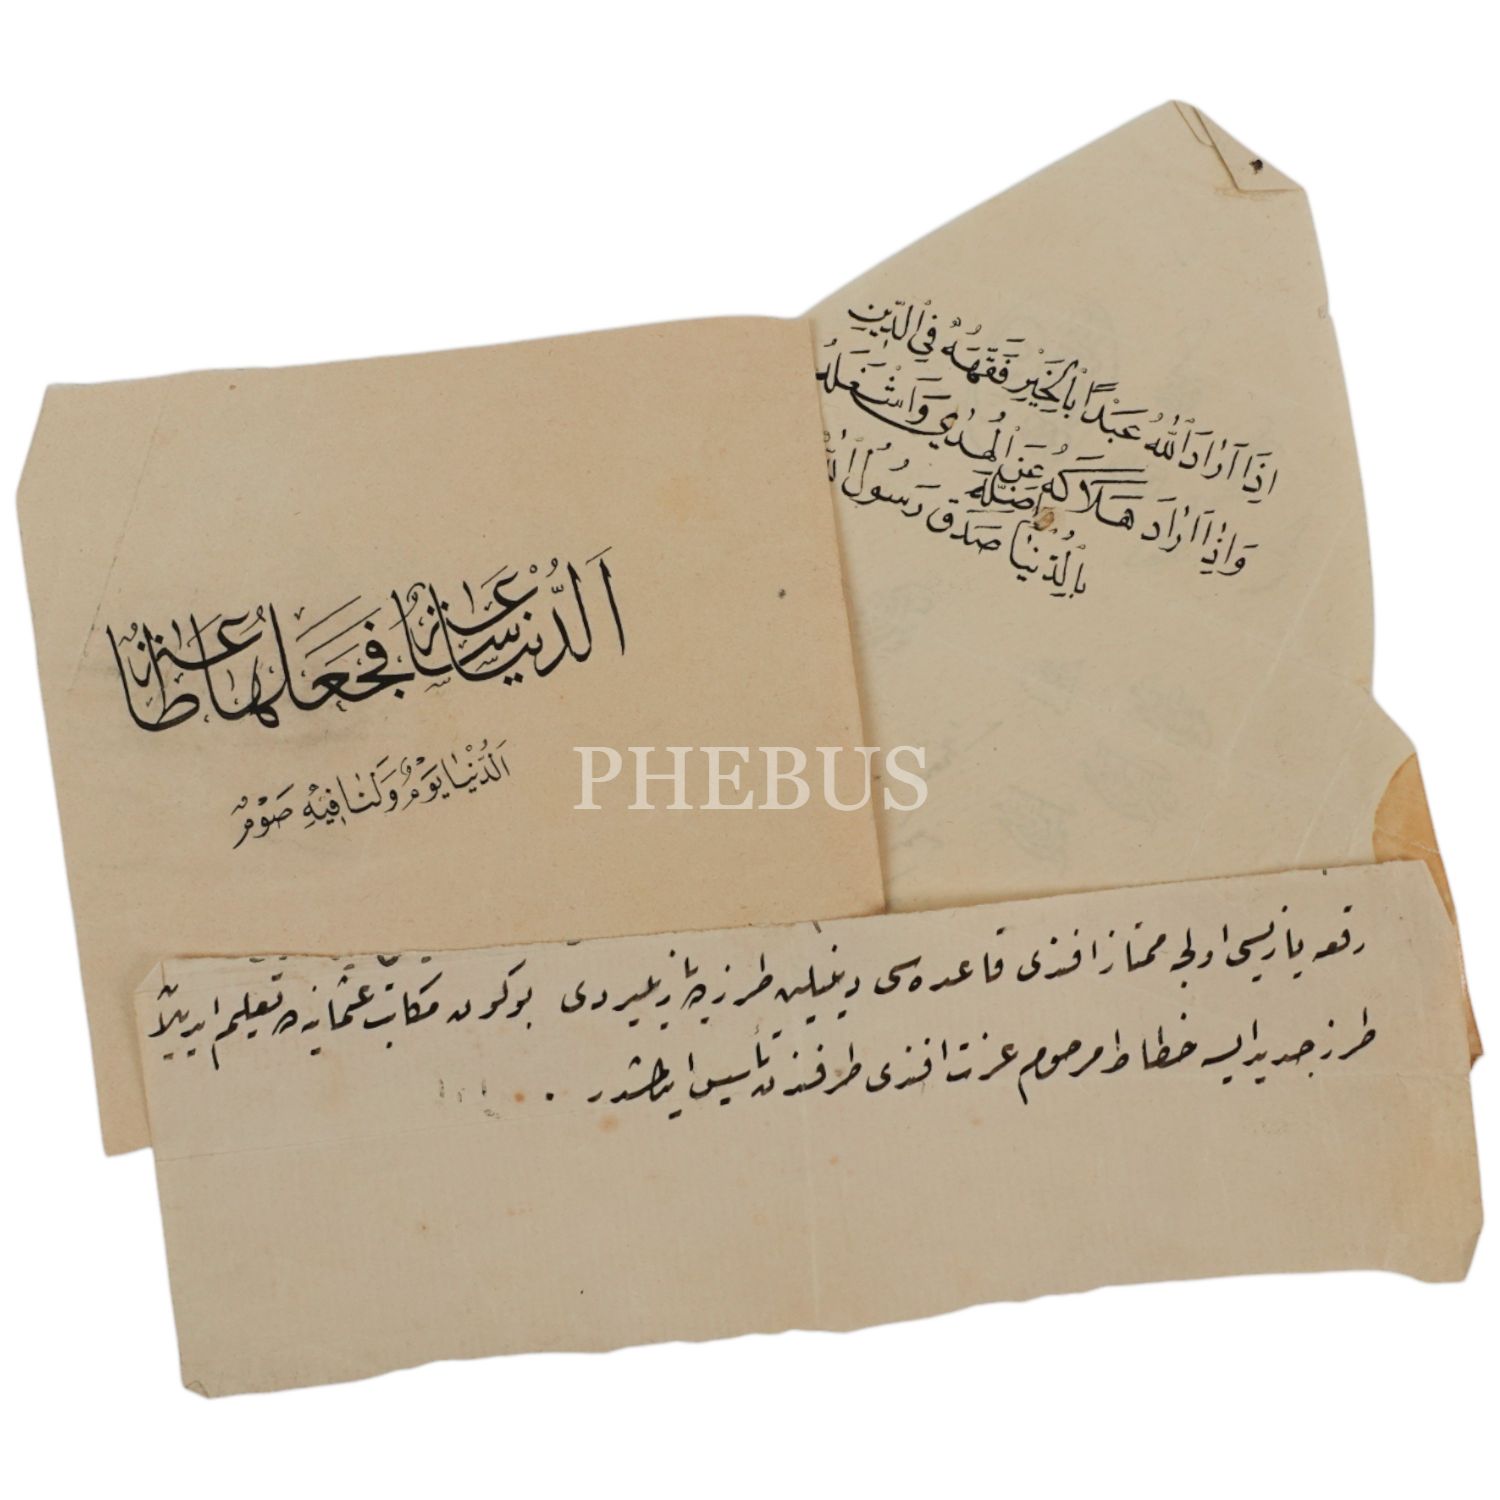 اِذَا اَرَادَ اللهُ عَبْدًا بِالْخَيْرِ فَقَّهَهُ فِي الدِّينِ
وَاِذَا اَرَادَ هَلَاكَهُ اَضَلَّهُ عَنِ الْهُدٰى وَاَشْغَلَهُ
بِالدُّنْيَا صَدَقَ رَسُولُ الله
اَلدُّنْيَا سَاعَةٌ فَجَعَلَهَا طَاعَةً
اَلدُّنْيَا يَوْمٌ وَلَنَا فِيهِ صَوْمٌ
PHEBUS
رقعه یازیسی اولجه ممتاز افندی قاعده سی دینیلین طرزده یازیلیردی بوكون مكاتب عثمانیه ده تعلیم ایدیلن
طرز جدید ایسه خطاط مرحوم عزت افندی طرفندن تأسیس ایدلمشدر .